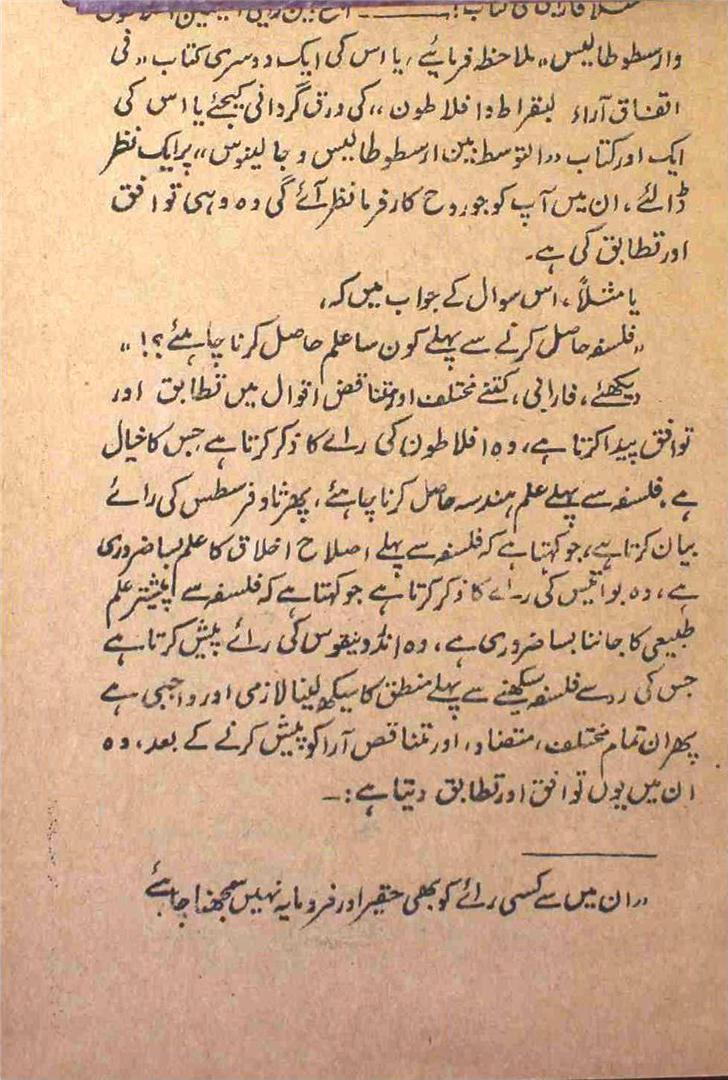 مثلاً فارابی کی کتاب:
وارسطوطالیس،، ملاحظہ فرمایئے، یا اس کی ایک دوسری کتاب ،،فی
اتفاق آراء لبقراط وافلاطون،، کی ورق گردانی کیجئے یا اس کی
ایک اور کتاب ،،التوسط بین ارسطوطالیس وجالینوس،، پر ایک نظر
ڈالئے، ان میں آپ کو جو روح کارفرما نظر آئے گی وہ وہی توافق
اور تطابق کی ہے۔
یا مثلاً، اس سوال کے جواب میں کہ،
،،فلسفہ حاصل کرنے سے پہلے کون سا علم حاصل کرنا چاہئے؟!،،
دیکھئے، فارابی، کتنے مختلف اور متناقض اقوال میں تطابق اور
توافق پیدا کرتا ہے، وہ افلاطون کی رائے کا ذکر کرتا ہے جس کا خیال
ہے۔ فلسفہ سے پہلے علم ہندسہ حاصل کرنا چاہئے، پھر ثاوفرسطس کی رائے
بیان کرتا ہے، جو کہتا ہے کہ فلسفہ سے پہلے اصلاح اخلاق کا علم بسا ضروری
ہے، وہ بواتیس کی رائے کا ذکر کرتا ہے جو کہتا ہے کہ فلسفہ سے پیشتر علم
طبیعی کا جاننا بسا ضروری ہے، وہ اندونیقوس کی رائے پیش کرتا ہے
جس کی رو سے فلسفہ سیکھنے سے پہلے منطق کا سیکھ لینا لازمی اور واجبی ہے
پھر ان تمام مختلف، متضاد، اور تناقص آرا کو پیش کرنے کے بعد، وہ
ان میں یوں توافق اور تطابق دیتا ہے:۔
،،ان میں سے کسی رائے کو بھی حقیر اور فرومایہ نہیں سمجھنا چاہئے